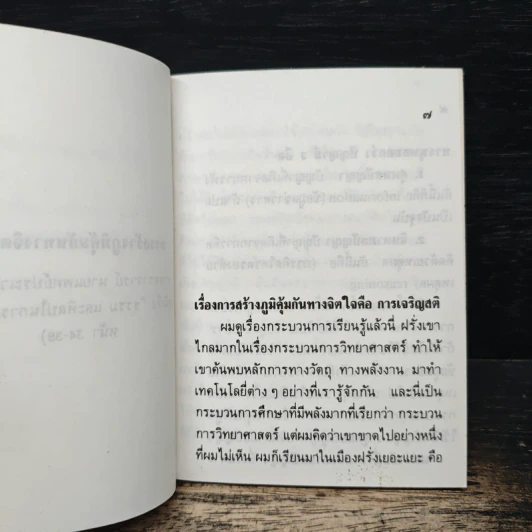 ๗
เรื่องการสร้างภูมิคุ้มกันทางจิตใจคือ การเจริญสติ
ผมดูเรื่องกระบวนการเรียนรู้แล้วนี่ ฝรั่งเขา
ไกลมากในเรื่องกระบวนการวิทยาศาสตร์ ทำให้
เขาค้นพบหลักการทางวัตถุ ทางพลังงาน มาทำ
เทคโนโลยี่ต่าง ๆ อย่างที่เรารู้จักกัน และนี่เป็น
กระบวนการศึกษาที่มีพลังมากที่เรียกว่า กระบวน
การวิทยาศาสตร์ แต่ผมคิดว่าเขาขาดไปอย่างหนึ่ง
ที่ผมไม่เห็น ผมก็เรียนมาในเมืองฝรั่งเยอะแยะ คือ